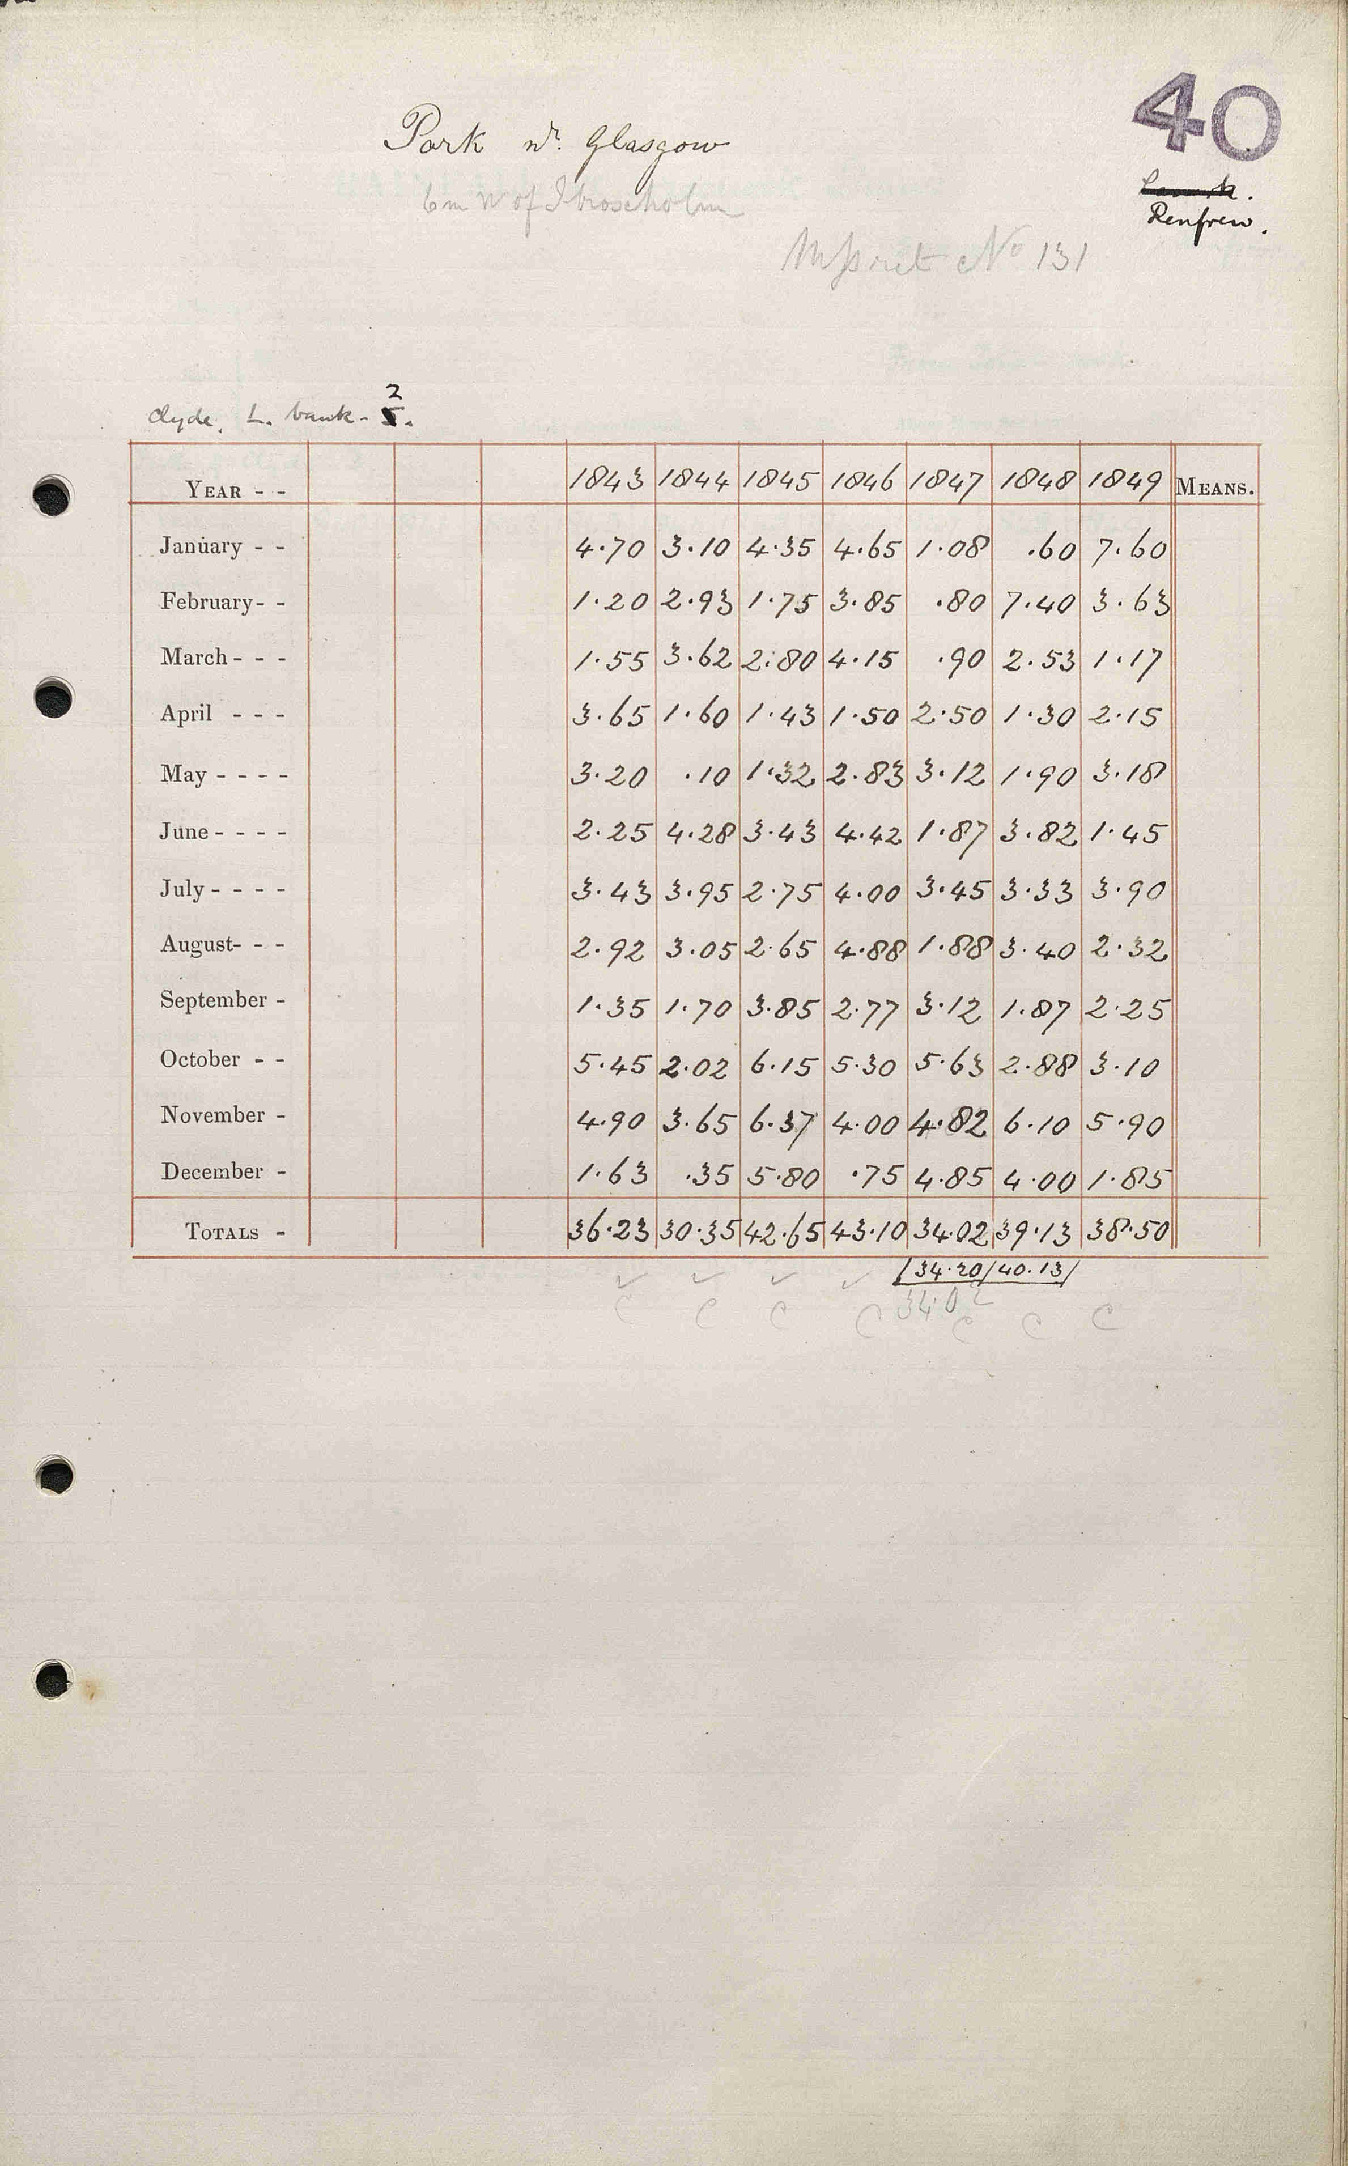 40
Park nr. Glasgow
Lanark.
Renfrew.
6m W of Ibroxholm
No 131
Clyde. L. bank - 2
5.
YEAR - - 1843 1844 1845 1846 1847 1848 1849 MEANS.
January - - 4.70 3.10 4.35 4.65 1.08 .60 7.60
February - - 1.20 2.93 1.75 3.85 .80 7.40 3.63
March - - - 1.55 3.62 2.80 4.15 .90 2.53 1.17
April - - - 3.65 1.60 1.43 1.50 2.50 1.30 2.15
May - - - - 3.20 .10 1.32 2.83 3.12 1.90 3.18
June - - - - 2.25 4.28 3.43 4.42 1.87 3.82 1.45
July - - - - 3.43 3.95 2.75 4.00 3.45 3.33 3.90
August - - - 2.92 3.05 2.65 4.88 1.88 3.40 2.32
September - 1.35 1.70 3.85 2.77 3.12 1.87 2.25
October - - 5.45 2.02 6.15 5.30 5.63 2.88 3.10
November - 4.90 3.65 6.37 4.00 4.82 6.10 5.90
December - 1.63 .35 5.80 .75 4.85 4.00 1.85
TOTALS - 36.23 30.35 42.65 43.10 34.02 39.13 38.50
34.20 40.13
34.02
C C C C C C C